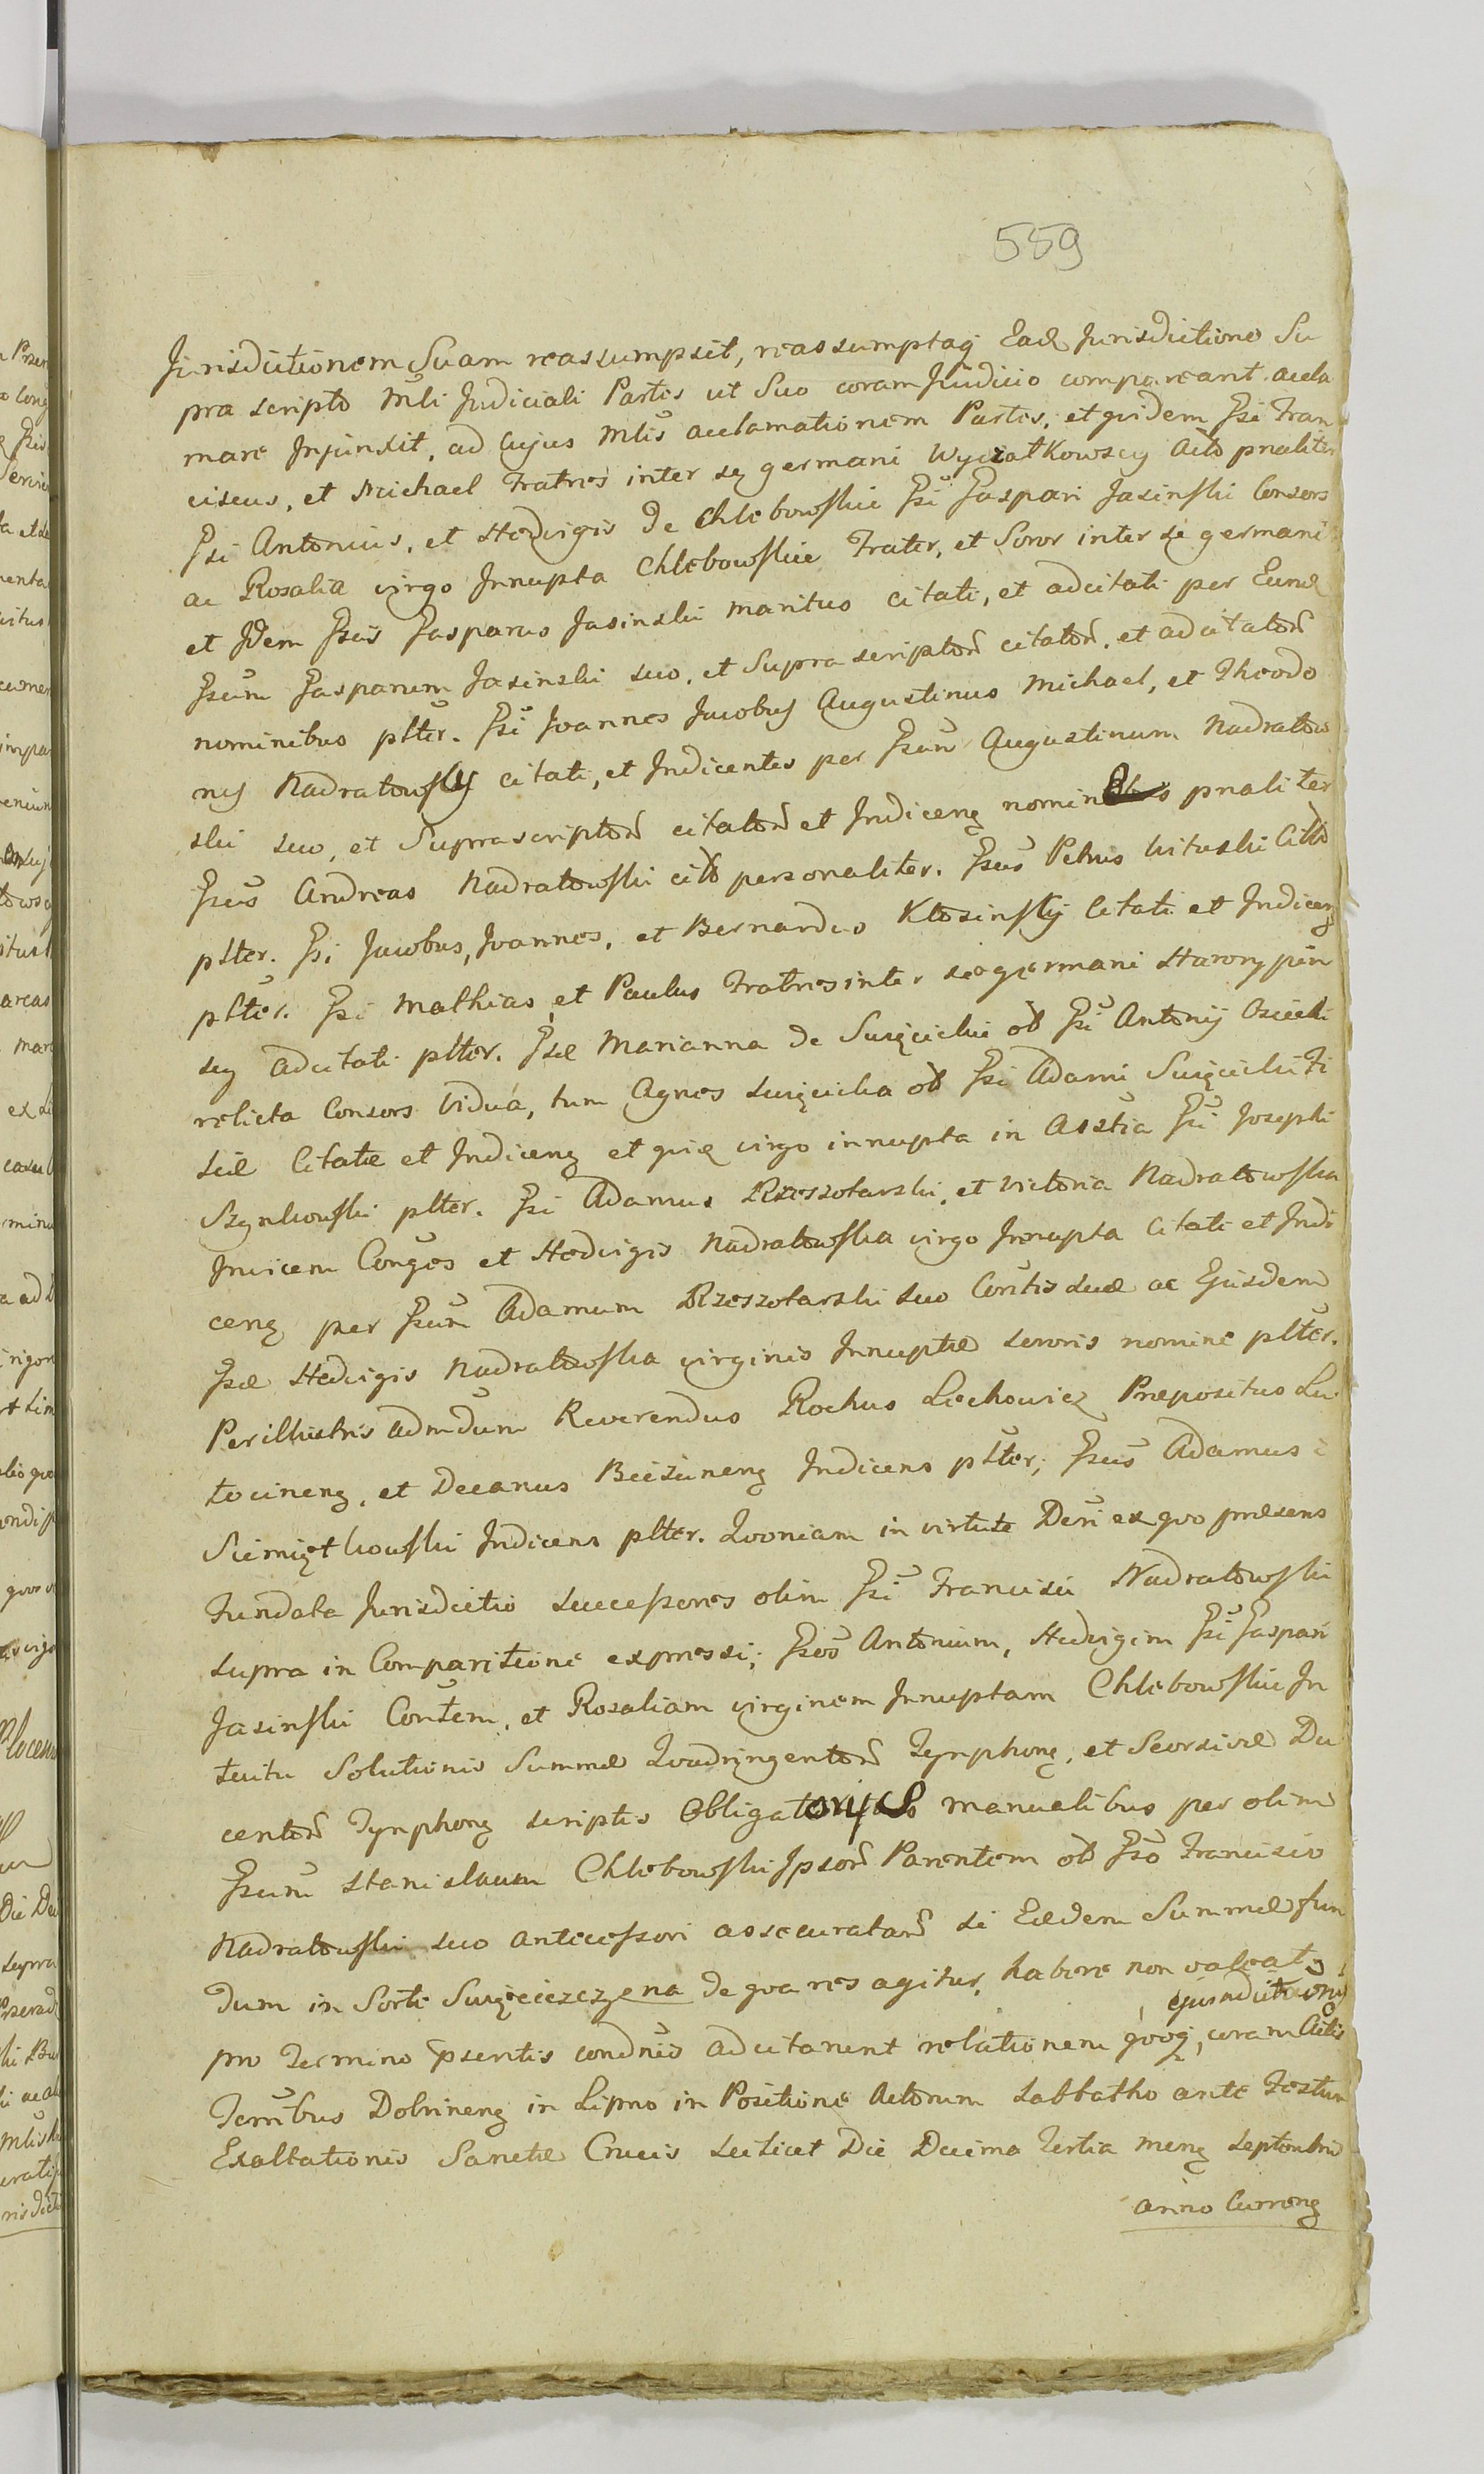 559
Jurisdictionem Suam reassumpsit, reassumptaq Ead Jurisdictione Su
pra scripto Mli Judiciali Partes ut Suo coram Judicio compareant acla
mare Injunxit, ad Cujus Mlis acclamationem Partes, et quidem Gsi Fran
ciscus, et Michael Fratres inter se germani Wyczałkowscy pnaliter
Gsi Antonius, et Hedvigis de Chlebowskie Gsi Gaspari Jasinski Consors
ac Rosalia virgo Innupta Chlebowskie Frater, et Soror inter se germani
et Idem Gsus Gasparus Jasinski maritus citati, et adcitati per Eund
Gsum Gasparum Jasinski suo, et Supra scriptor citator, et adcitator
nominibus plter. Gsi Joannes Jacobus Augustinus Michael, et Theodo
rus Nadratowscy citati, et Indicentes per Gsum Augustinum Nadratow
ski suo, et Suprascriptor citator et Indicen nominibus pnaliter
Gsus Andreas Nadratowski cito personaliter. Gsus Petrus
plter. Gsi Jacobus, Joannes, et Bernardus Kłosinscy Citati et Indicen
plter. Gsi Mathias, et Paulus Fratres inter se germani Starorypin
scy adcitati plter. Gsae Marianna de Swięcickie ol Gsi Antonij Osiecki
relicta Consors vidua, tum Agnes Swięcicka ol Gsi Adami Swięcicki Fi
liae Citatae et Indicen et quae virgo innupta in Asstia Gsi Josephi
Szynkowski plter. Gsi Adamus Rzeszotarski, et Victoria Nadratowska
Invicem Conges et Hedvigis Nadratowska virgo Innupta Citati et Indi
cen per Gsum Adamum Rzeszotarski suo Contis suae ac Ejusdem
Gsae Hedvigis Nadratowska virginis Innuptae sororis nomine plter.
Perillustris admdum Reverendus Rochus Lechowicz Praepositus Lu
tocinen, et Decanus Biezunen Indicens plter, Gsus Adamus
Siemiętkowski Indicens plter. Quoniam in virtute Dcri ex quo praesens
Fundata Jurisdictio successores olim Gsi Francisci Nadratowski
supra in Comparitione expressi; Gsos Antonium, Hedvigim Gsi Gaspari
Jasinski Contem, et Rosaliam virginem Innuptam Chlebowskie In
tuitu Solutionis Summae Quadringentor Tynphon, et Seorsivae Du
centor Tynphon scriptis Obligatorijs manualibus per olim
Gsum Stanislaum Chlebowski Ipsor Parentem ol Gso Francisco
Nadratowski suo antecessori assecuratar si Eaedem Summae fun
dum in Sorte Swięciczczyzna de qua res agitur, habere non valeat,
pro Termino psentis condnis adcitarunt relationem quoq ejusd citaonis, coram Actis
Terribus Dobrinen in Lipno in Positione Actorum Sabbatho ante Festum
Exaltationis Sanctae Crucis scilicet Die Decima Tertia Mens Septembris
anno Curren